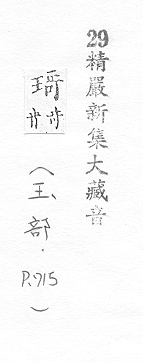 29精嚴新集大藏音
(玉部.P.715)